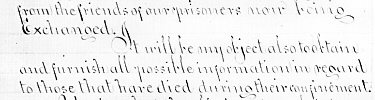 from the friends of our prisoners now being
Exchanged.
It will be my object also to obtain
and furnish all possible information in regard
to those that have died during their confinement.